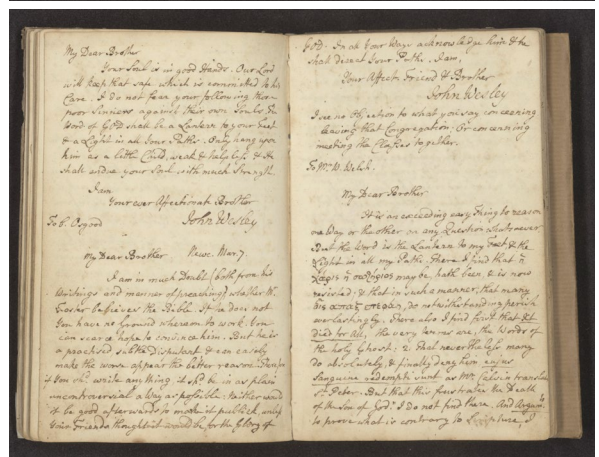 My Dear Brother
Your Soul is in good Hands. Our Lord
will keep that safe which is committed to his
Care. I do not fear your following those
poor Sinners against their own Souls. The
Word of GOD shall be a Lantern to your Feet
& a Light in all your Paths. Only hang upon
him as a little Child, weak & helpless & He
shall endue your Soul with much Strength.
I am
Your ever Affectionate Brother
To B. Osgood John Wesley
My Dear Brother Newc. Mar. 7.
I am in much Doubt (both from his
Writings and manner of preaching) whether Mr.
believes the Bible. If he does not
you have no Ground whereon to work: You
can scarce hope to convince him. But he is
a practised subtle Disputant & can easily
make the worse appear the better reason. Therefore
if you shd. write any thing, it shd. be in as plain
uncontroversial a Way as possible. Neither would
it be good afterwards to make it publick, unless
your Friends thought it would be for the Glory of
GOD. In all your Ways acknowledge him & he
shall direct your Paths. I am,
Your Affecte. Friend & Brother
John Wesley
I see no Objection to what you say concerning
leaving that Congregation, Or concerning
meeting the Classes together.
To Mr. W. Welsh.
My Dear Brother
It is an exceeding easy Thing to reason
one Way or the other on any Question whatsoever
But the Word is the Lantern to my Feet & the
Light in all my Paths. There I find that ἡ
χάρις ἡ σωτήριος may be, hath been, & is now
resisted: & that in such a manner, that many
do notwithstanding perish
everlastingly. There also I find first that Xt
died for All, the very Terms are, the Words of
the holy Ghost: 2. That nevertheless many
do absolutely, & finally deny him cujus
Sanguine redempti sunt as Mr. Calvin translates
St Peter. But that this frustrates the Death
of the Son of God: I do not find there. And Argum.
to prove what is contrary to Scripture, I